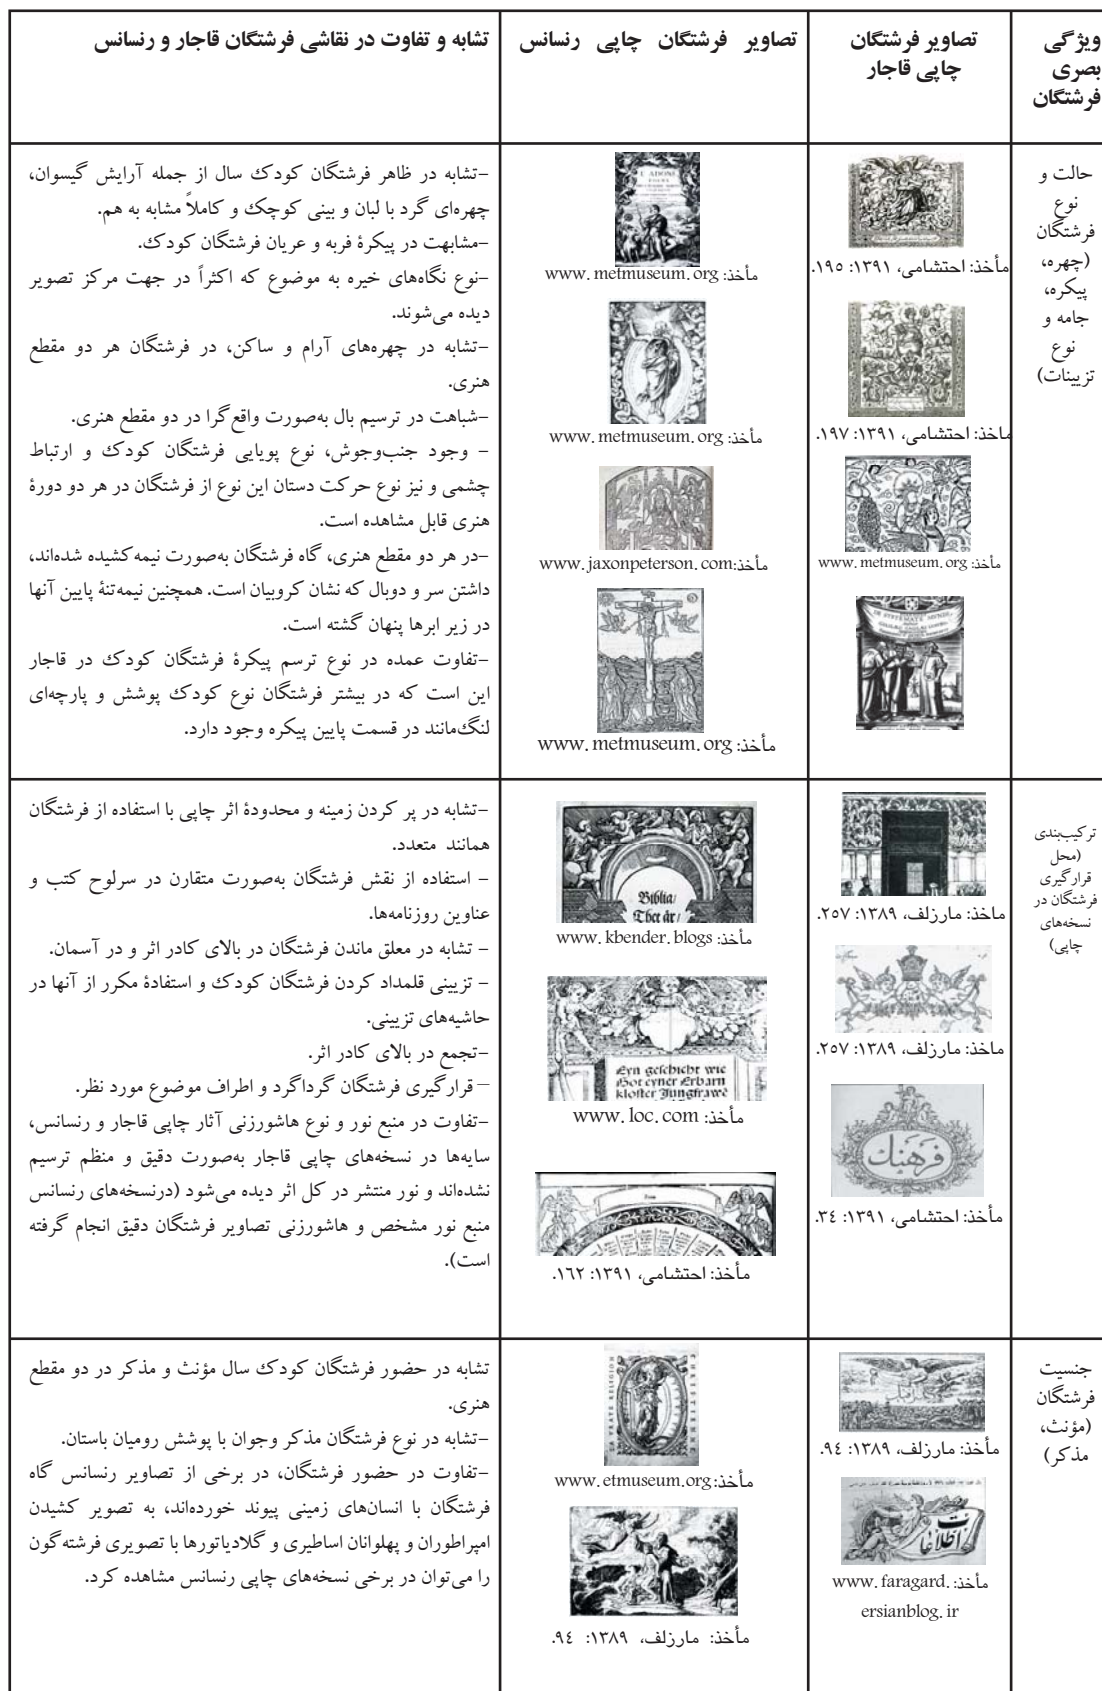 ویژگی
بصری
فرشتگان
تصاویر فرشتگان
چاپی قاجار
تصاویر فرشتگان چاپی رنسانس
تشابه و تفاوت در نقاشی فرشتگان قاجار و رنسانس
حالت و
نوع
فرشتگان
(چهره،
پیکره،
جامه و
نوع
تزیینات)
مأخذ: احتشامی، ۱۳۹۱: ۱۹۵.
ماخذ: احتشامی، ۱۳۹۱: ۱۹۷.
مأخذ: www.metmuseum.org
مأخذ: www.metmuseum.org
مأخذ: www.metmuseum.org
مأخذ:www.jaxonpeterson.com
مأخذ: www.metmuseum.org
-تشابه در ظاهر فرشتگان کودک سال از جمله آرایش گیسوان،
چهره‌ای گرد با لبان و بینی کوچک و کاملاً مشابه به هم.
-مشابهت در پیکرۀ فربه و عریان فرشتگان کودک.
-نوع نگاه‌های خیره به موضوع که اکثراً در جهت مرکز تصویر
دیده می‌شوند.
-تشابه در چهره‌های آرام و ساکن، در فرشتگان هر دو مقطع
هنری.
-شباهت در ترسیم بال به‌صورت واقع‌گرا در دو مقطع هنری.
- وجود جنب‌وجوش، نوع پویایی فرشتگان کودک و ارتباط
چشمی و نیز نوع حرکت دستان این نوع از فرشتگان در هر دو دورۀ
هنری قابل مشاهده است.
-در هر دو مقطع هنری، گاه فرشتگان به‌صورت نیمه کشیده شده‌اند،
داشتن سر و دوبال که نشان کروبیان است. همچنین نیمه‌تنۀ پایین آنها
در زیر ابرها پنهان گشته است.
-تفاوت عمده در نوع ترسم پیکرۀ فرشتگان کودک در قاجار
این است که در بیشتر فرشتگان نوع کودک پوشش و پارچه‌ای
لنگ‌مانند در قسمت پایین پیکره وجود دارد.
ترکیب‌بندی
(محل
قرارگیری
فرشتگان در
نسخه‌های
چاپی)
ماخذ: مارزلف، ۱۳۸۹: ۲۵۷.
ماخذ: مارزلف، ۱۳۸۹: ۲۵۷.
فرهنگ
مأخذ: احتشامی، ۱۳۹۱: ۳٤.
Biblia/
Thet är/
مأخذ: www.kbender.blogs
Eyn geschicht wie
Got eyner Erbarn
kloster Jungfrawē
مأخذ: www.loc.com
مأخذ: احتشامی، ۱۳۹۱: ۱٦۲.
-تشابه در پر کردن زمینه و محدودۀ اثر چاپی با استفاده از فرشتگان
همانند متعدد.
- استفاده از نقش فرشتگان به‌صورت متقارن در سرلوح کتب و
عناوین روزنامه‌ها.
- تشابه در معلق ماندن فرشتگان در بالای کادر اثر و در آسمان.
- تزیینی قلمداد کردن فرشتگان کودک و استفادۀ مکرر از آنها در
حاشیه‌های تزیینی.
-تجمع در بالای کادر اثر.
– قرارگیری فرشتگان گرداگرد و اطراف موضوع مورد نظر.
-تفاوت در منبع نور و نوع هاشورزنی آثار چاپی قاجار و رنسانس،
سایه‌ها در نسخه‌های چاپی قاجار به‌صورت دقیق و منظم ترسیم
نشده‌اند و نور منتشر در کل اثر دیده می‌شود (درنسخه‌های رنسانس
منبع نور مشخص و هاشورزنی تصاویر فرشتگان دقیق انجام گرفته
است).
جنسیت
فرشتگان
(مؤنث،
مذکر)
مأخذ: مارزلف، ۱۳۸۹: ۹٤.
اطلاعات
مأخذ: www.faragard.
ersianblog.ir
مأخذ:www.etmuseum.org
مأخذ: مارزلف، ۱۳۸۹: ۹٤.
تشابه در حضور فرشتگان کودک سال مؤنث و مذکر در دو مقطع
هنری.
-تشابه در نوع فرشتگان مذکر وجوان با پوشش رومیان باستان.
-تفاوت در حضور فرشتگان، در برخی از تصاویر رنسانس گاه
فرشتگان با انسان‌های زمینی پیوند خورده‌اند، به تصویر کشیدن
امپراطوران و پهلوانان اساطیری و گلادیاتورها با تصویری فرشته‌گون
را می‌توان در برخی نسخه‌های چاپی رنسانس مشاهده کرد.